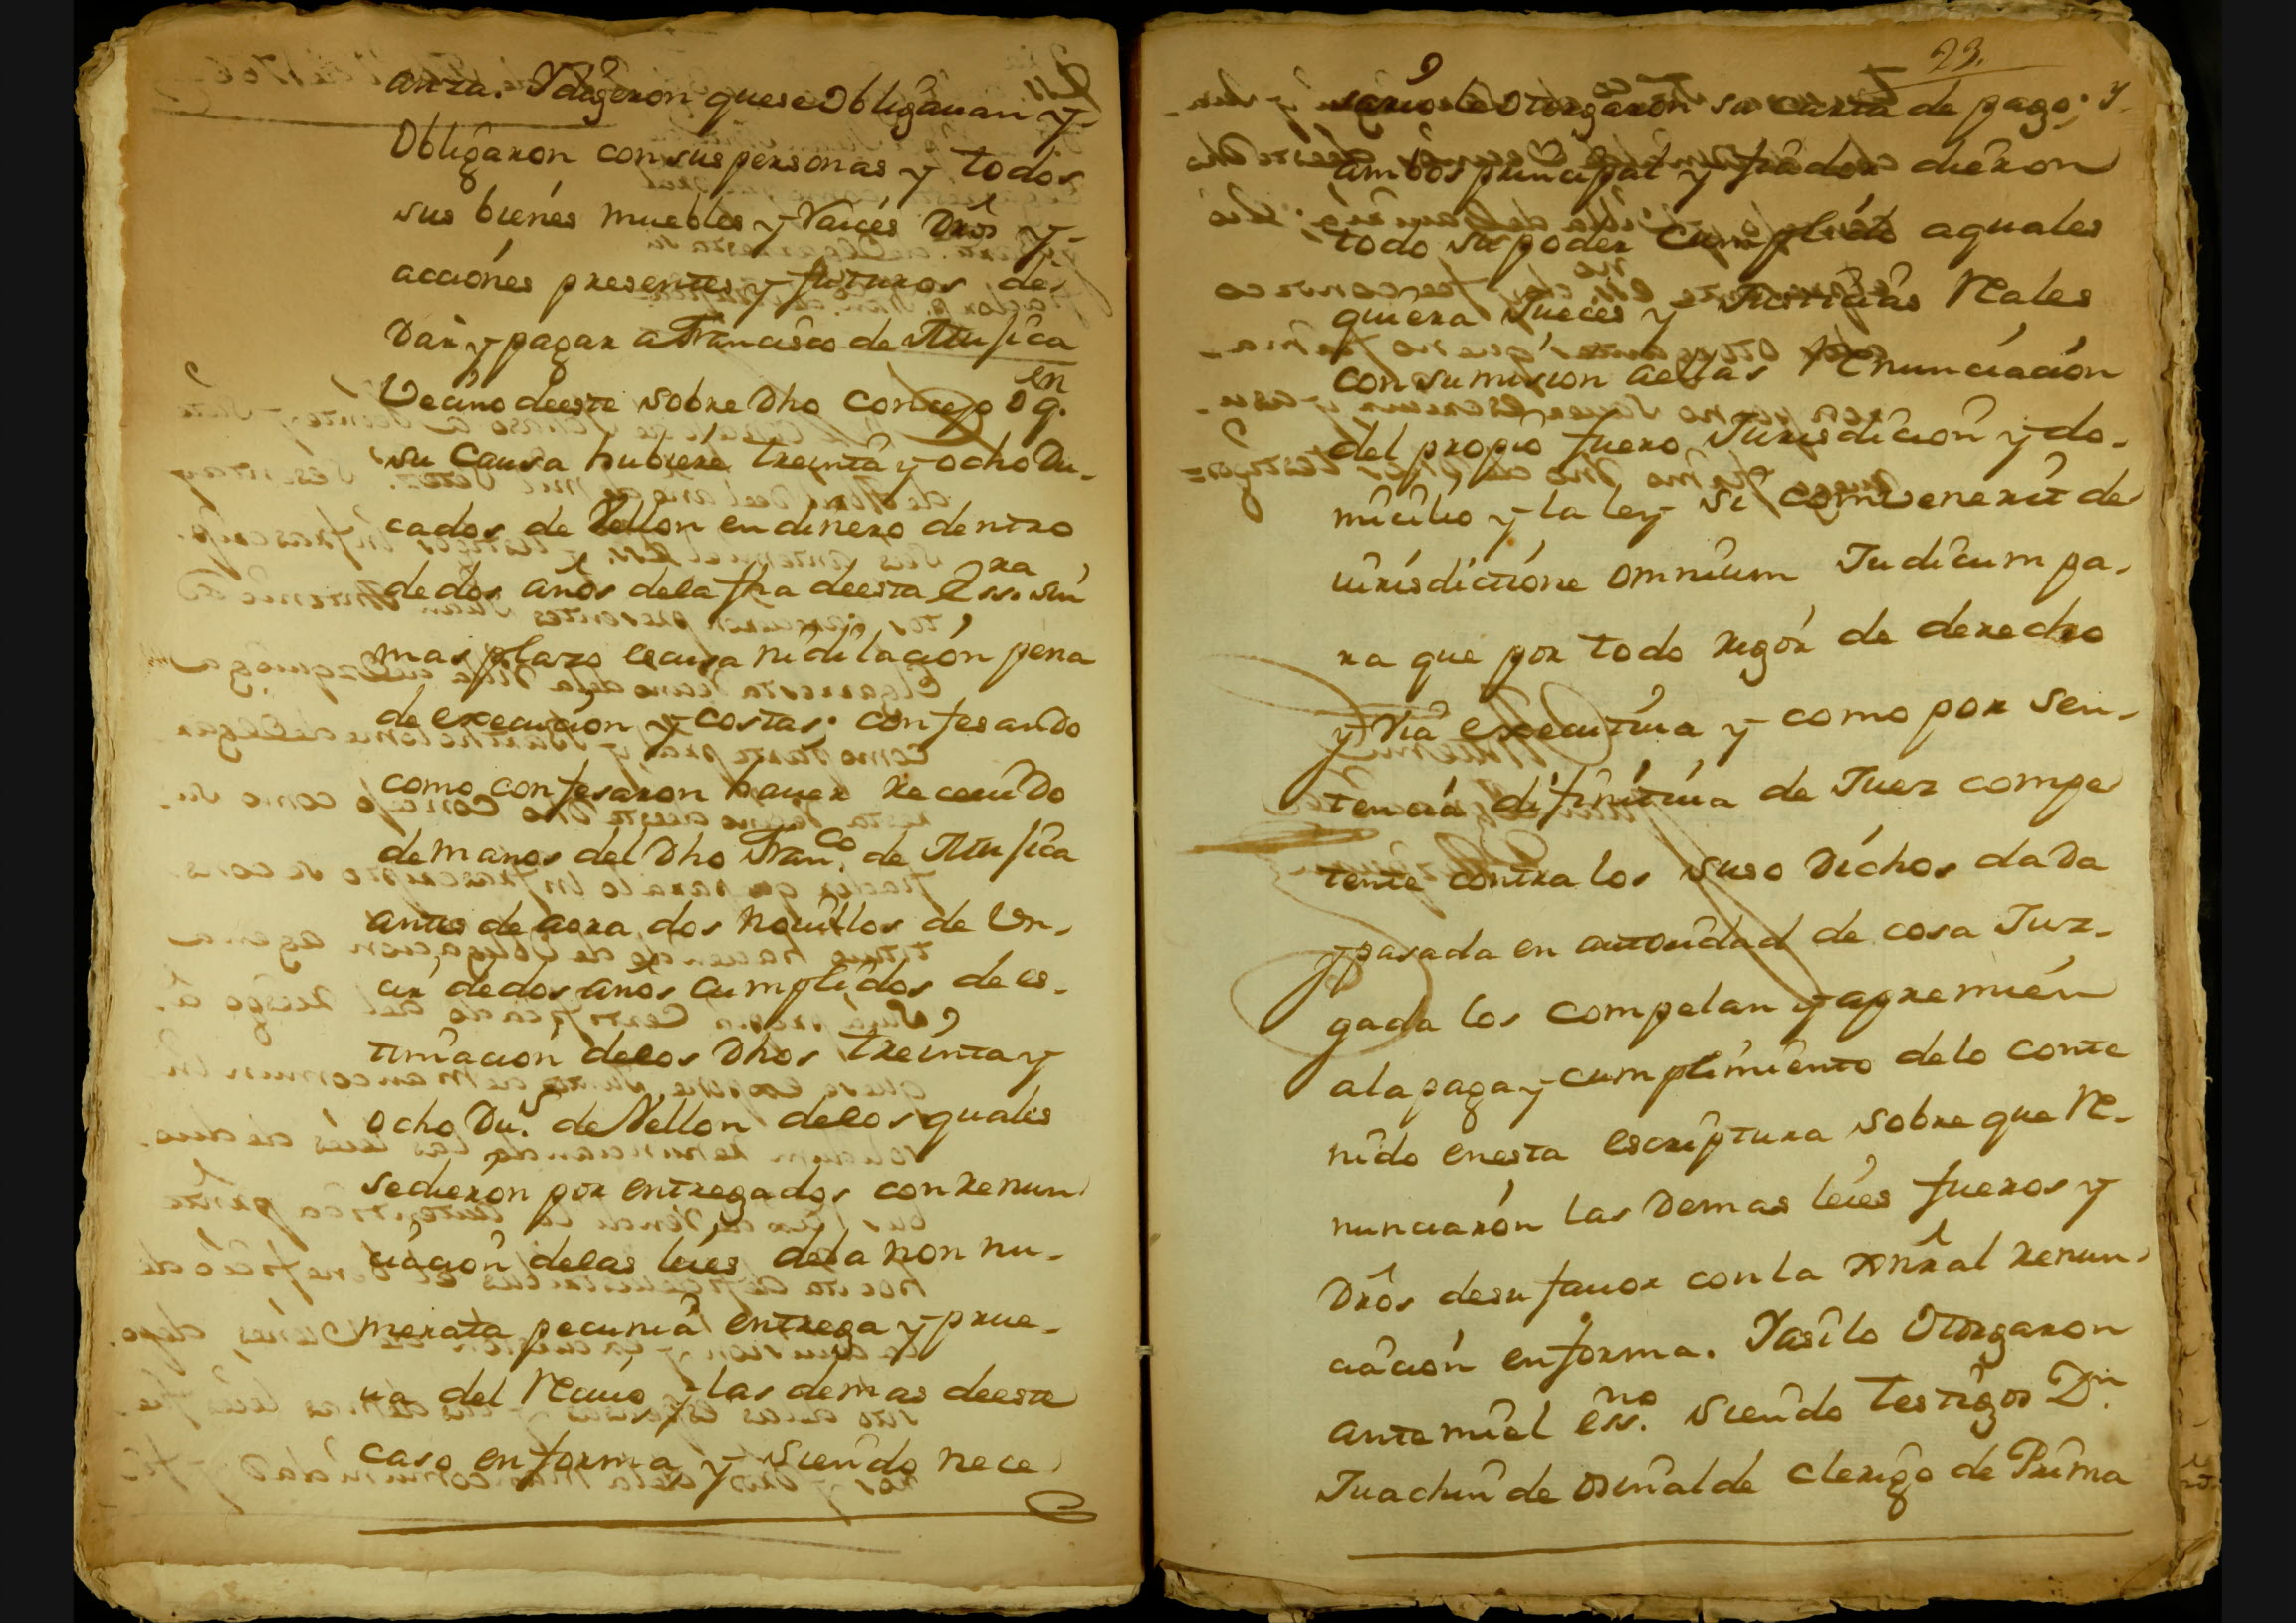 anza. Y digeron que se Obligauan y
Obligaron con sus personas y todos
sus bienes muebles y Raices Drôs y
acciones presentes y futuros de
Dar y pagar a Francisco de Musica
Vecino deeste sobre Dho Concejo o q.en
su Causa hubiere treinta y ocho Du-
cados de Vellon en dinero dentro
de dos años dela fha deesta Ess.ra sin
mas plazo escusa ni dilacion pena
de execucion y costas; confesando
como confesaron hauer Receuido
de manos del Dho Fran.co de Musica
antes de aora dos Nouillos de Un-
cir de dos años Cumplidos de es-
timacion delos Dhos treinta y
ocho Du.s de Vellon delos quales
se dieron por entregados con renun
ciacion delas leies dela non nu-
merata pecunia entrega y prue-
ua del Reciuo y las demas deeste
caso en forma y siendo nece
23.
sario le Otorgaron su carta de pago; y
ambos principal y fiador dieron
todo su poder Cumplido aquales
quiera Jueces y Justicias Reales
con sumision aellas Renunciacion
del propio fuero Jurisdicion y do-
micilio y la ley si convenerit de
iurisdictione omnium Judicum pa-
ra que por todo rigor de derecho
y Via executiua y como por sen-
tencia difinitiua de Juez compe
tente contra los suso Dichos dada
y pasada en autoridad de cosa Juz-
gada los compelan y apremien
ala paga y cumplimiento delo conte
nido enesta escriptura sobre que Re-
nunciaron las Demas leies fueros y
Drôs de su fauor con la gnral renun-
ciacion en forma. Yasilo Otorgaron
ante miel ess.no siendo testigos D.n
Juachin de osinalde clerigo de Prima